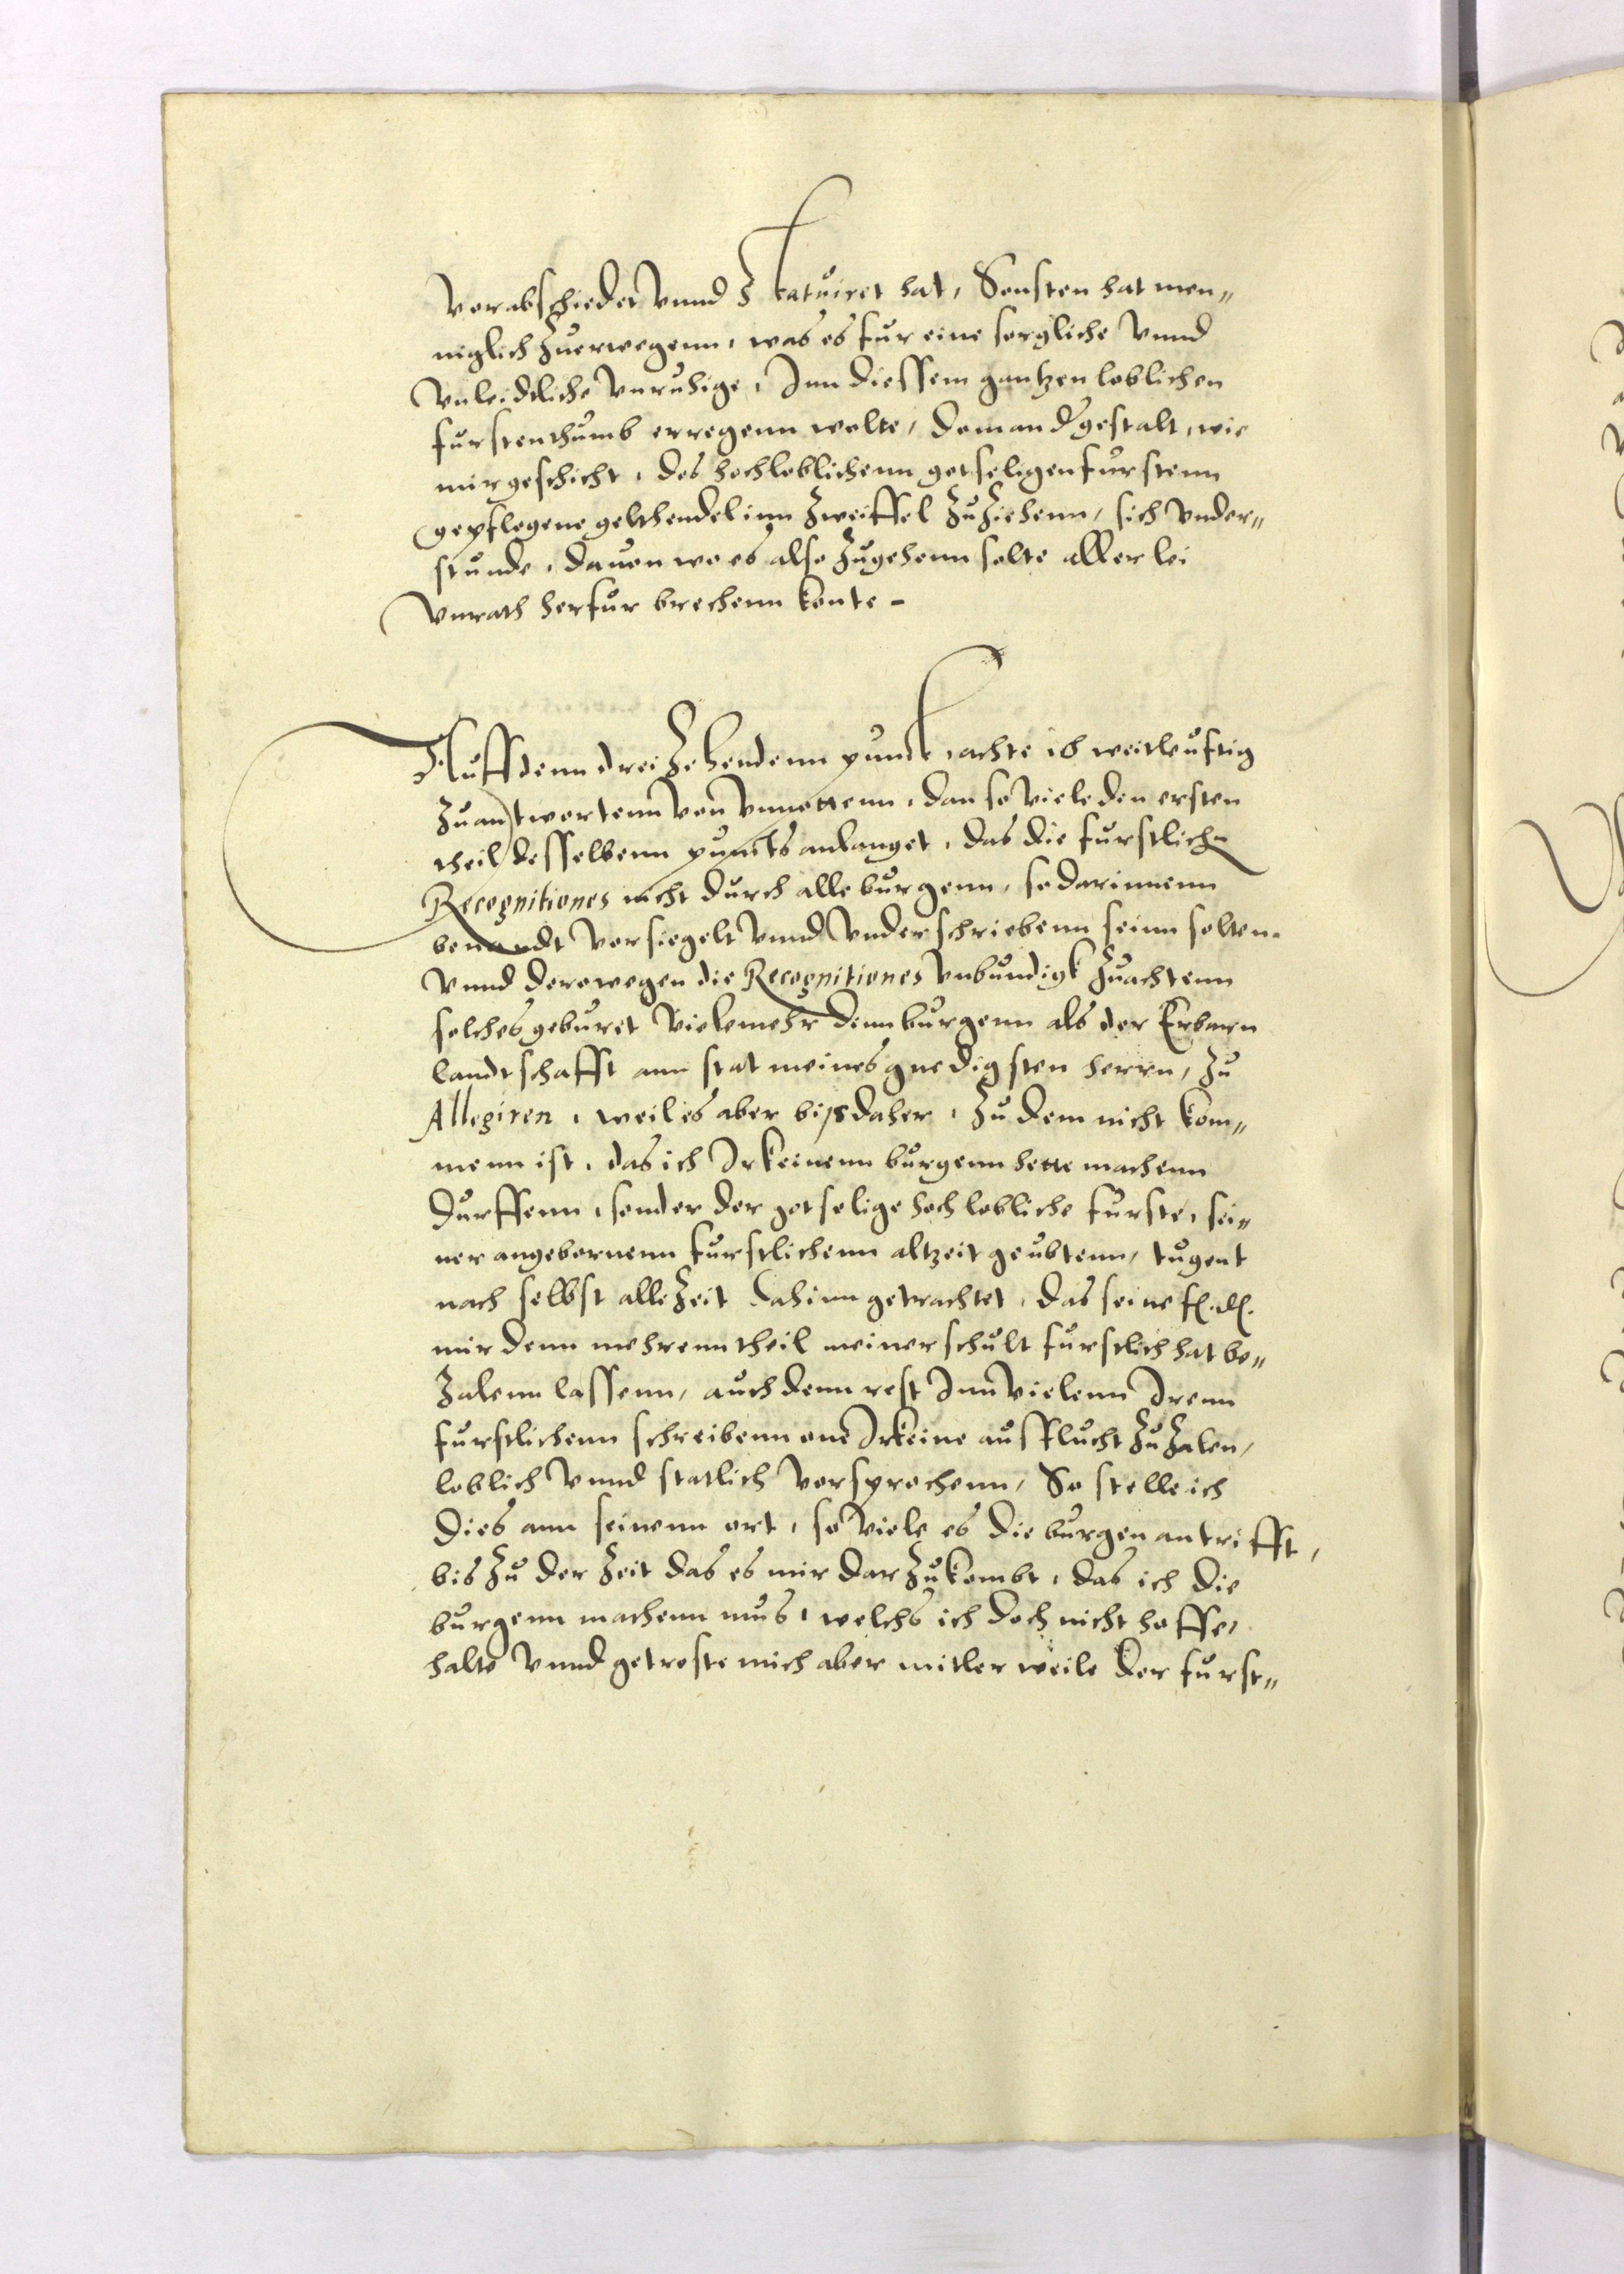 verabschiedet vnnd Statuiret hat, Sonsten hat men„
niglich zuerwegenn, was es fur eine sorgliche vnnd
vnleidtliche vnruhige, Inn diessem gantzen loblichen
furstenthumb erregenn wolte, do man dergestalt, wie
mir geschicht, des hochloblichenn gotseligen furstenn
gepflogene gelthendel inn zweiffel zuziehenn, sich vnder„
stunde, dauon wo es also zugehenn solte allerlei
vnrath herfur brechenn konte -
Auff denn dreizehendenn punct, achte ich weitleuftig
zuantwortenn von vnnottenn, dan so viele den ersten
theil desselbenn puncts anlanget, das die furstlichen
Recognitiones nicht durch alle burgenn, so darinnenn
benandt versiegelt vnnd vnderschriebenn seinn solten.
vnnd derowegen die Recognitiones vnbundigk zuachtenn
solches geburet vielemehr denn burgenn als der Erbarn
landtschafft ann stat meines gnedigsten herrn, zu
Allegiren, weil es aber bißdaher, zu dem nicht kom„
menn ist, das ich Irkeinenn burgenn hette machenn
durffenn, sonder der gotselige hochlobliche furste, sei„
ner angebornenn furstlichenn altzeit geubtenn, tugent
nach selbst alle Zeit dahinn getrachtet, das seine f. d.
mir denn mehrenn theil meiner schult furstlich hat be„
zalenn lassenn, auch denn rest Inn vielenn Irenn
furstlichenn schreibenn one Irkeine ausflucht zuzalen,
loblich vnnd statlich versprochenn, So stelle ich
dies ann seinenn ort, so viele es die burgen antrifft,
bis zu der Zeit das es mir darzu kombt, das ich die
burgenn machenn mus, welchs ich doch nicht hoffe,
halte vnnd getroste mich aber mitler weile der furst„